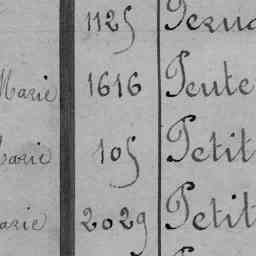 1125
Marie 1616 Peute
Marie 105 Petit
Marie 2029 Petit